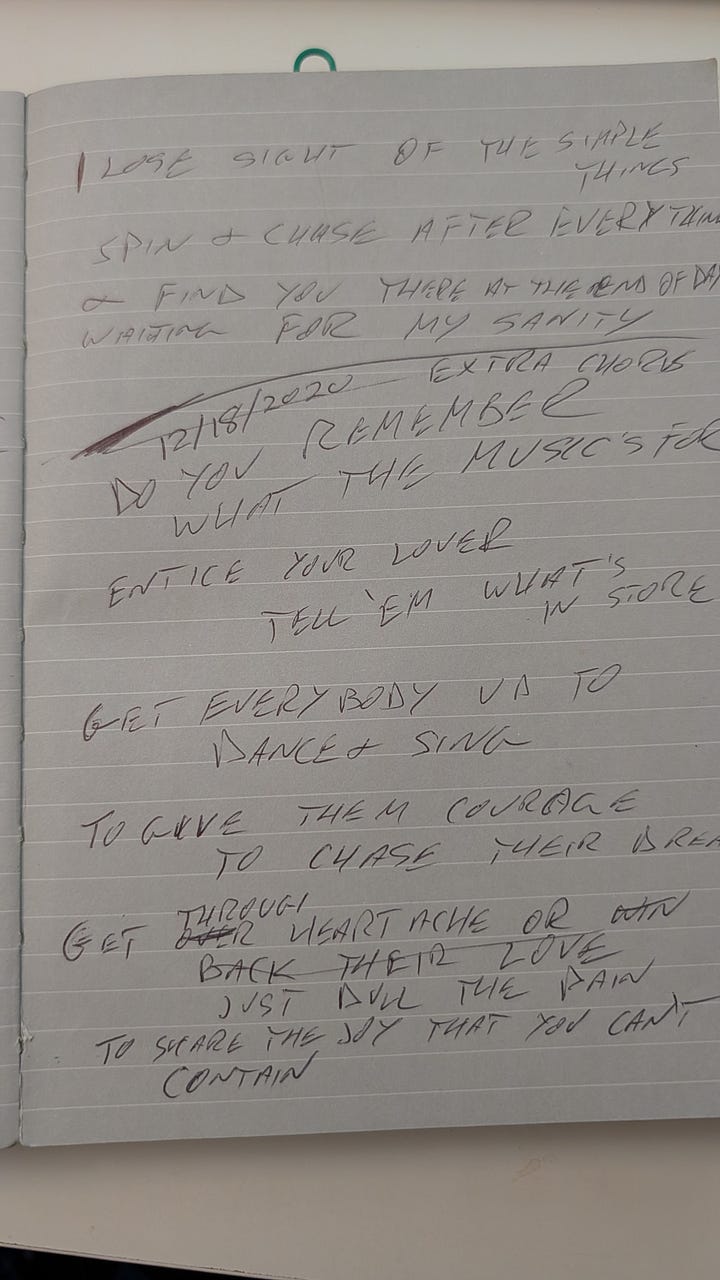 I LOSE SIGHT OF THE SIMPLE
THINGS
SPIN & CHASE AFTER EVERYTHIN
& FIND YOU THERE AT THE END OF DAY
WAITING FOR MY SANITY
12/18/2020 EXTRA CHORUS
DO YOU REMEMBER
WHAT THE MUSIC'S FOR
ENTICE YOUR LOVER
TELL 'EM WHAT'S
IN STORE
GET EVERYBODY UP TO
DANCE & SING
TO GIVE THEM COURAGE
TO CHASE THEIR DREA
THROUGH
GET OVER HEARTACHE OR WIN
BACK THEIR LOVE
JUST DULL THE PAIN
TO SHARE THE JOY THAT YOU CAN'T
CONTAIN